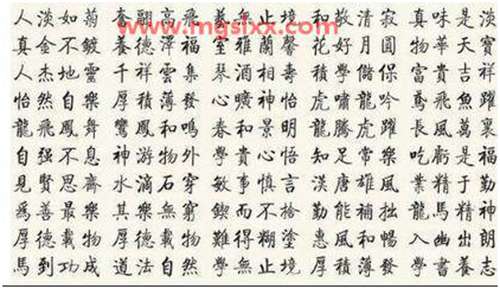 人淡如菊 奮翮高飛 無止境 和敬清寂 真味是淡
www.mgslxx.com
真金不鍍 養德澤福 雅蘭馨 花好月圓 物華天寶
人杰地靈 千祥雲集 琴酒相壽 積學儲保 富貴吉祥
怡然自樂 厚積薄發 心曠神怡 虎嘯龍吟 鳶飛魚躍
龍飛鳳舞 鸞鳳和鳴 春和景明 龍騰虎躍 長風萬裏
自强不息 神游物外 和貴心悟 知足常樂 吃虧是福
見賢思齋 水滴石穿 敏事慎言 漢唐雄風 業精于勤
爲善最樂 其樂無窮 鍥而不捨 勤能補拙 龍馬精神
厚德載物 難得糊塗 惠風和暢 入幽出朗
馬到功成 道法自然 學無止境 厚積薄發 學書養志